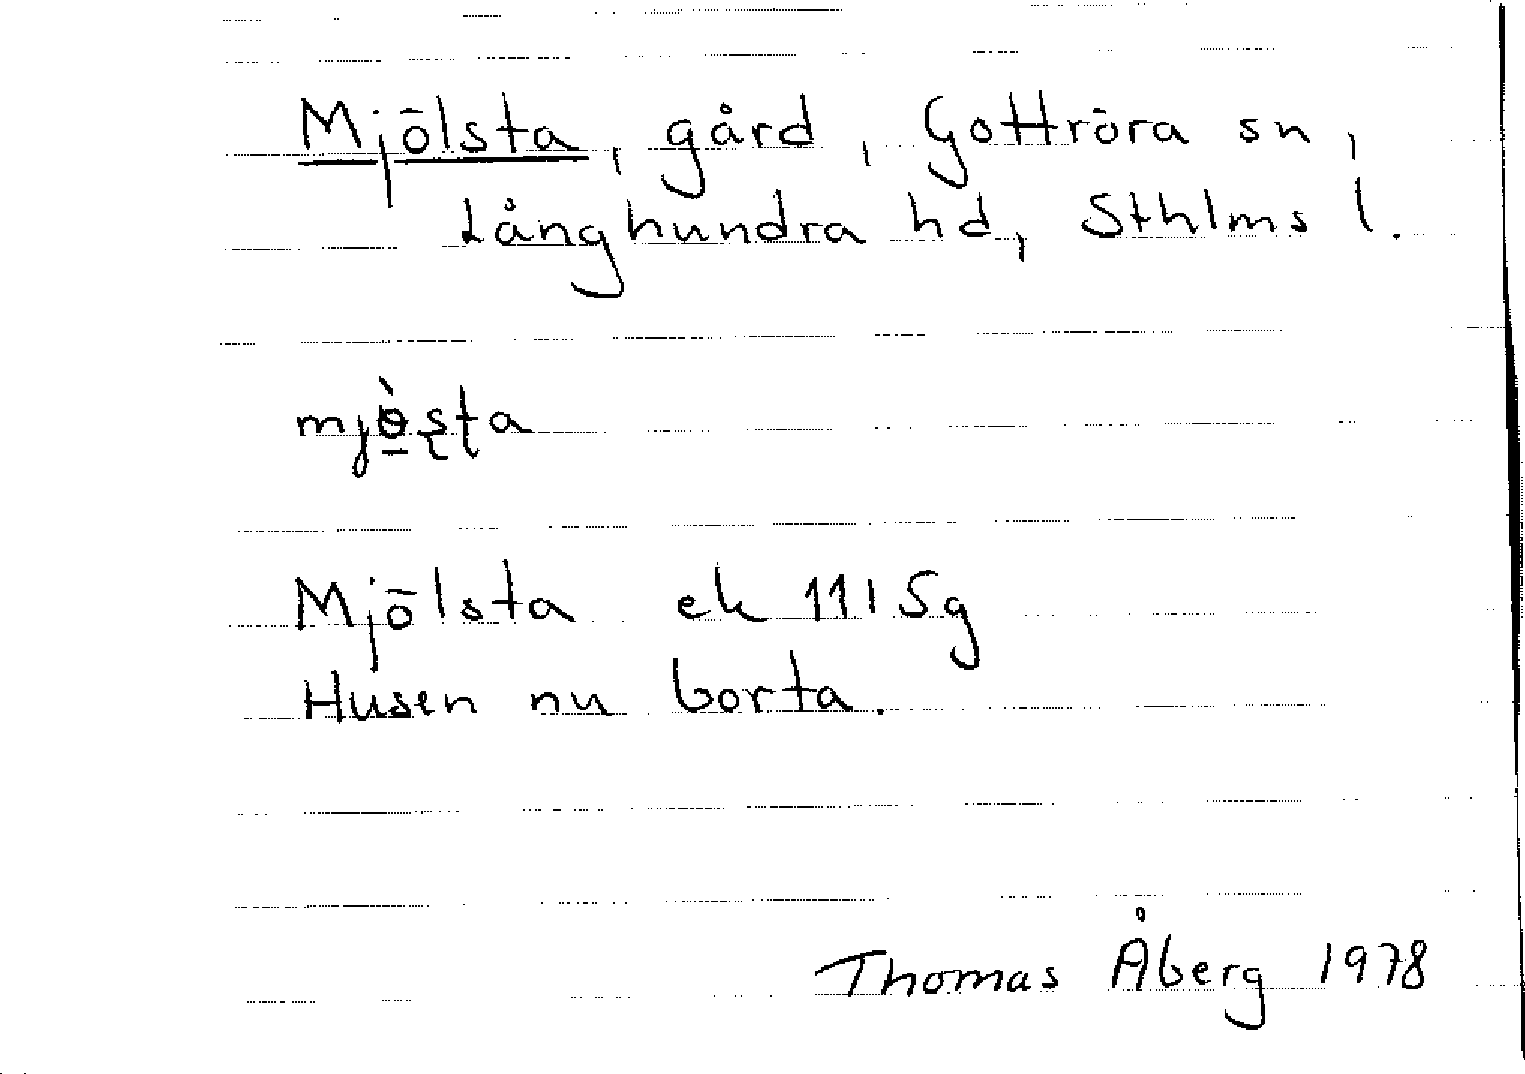 Mjölsta, gård, Gottröra sn,
Långhundra hd, Sthlms l.
mjö̀sta
Mjölsta ek 11I5g
Husen nu borta.
Thomas Åberg 1978